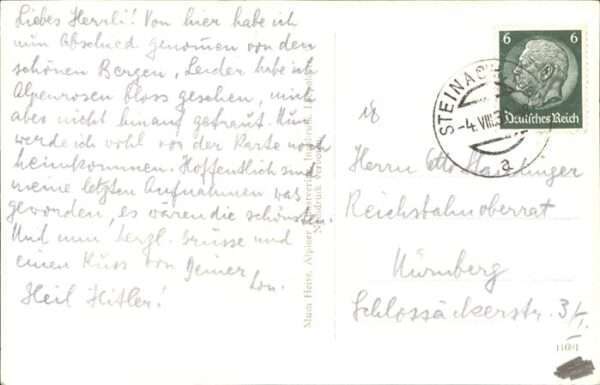 Liebes Herrli! Von hier habe ich
nun Abschied genommen von den
schönen Bergen, Leider hab ich
Alpenrosen bloss gesehen, mich
aber nicht hinauf getraut. Nun
werde ich wohl von der Parte noch
heimkommen. Hoffentlich sind
meine letzten Aufnahmen was
geworden, es wären die schönsten.
Und nun herzl. Grüsse und
einen Kuss von Deiner
Lon.
Heil Hitler!
Alpiner Kunstverlag, Innsbruck,
Nachdruck verboten
6 6
Deutsches Reich
STEINACH
-4.VIII.3
a
Herrn Otto
Reichsbahnoberrat
Nürnberg
Schlossäckerstr. 3/I.